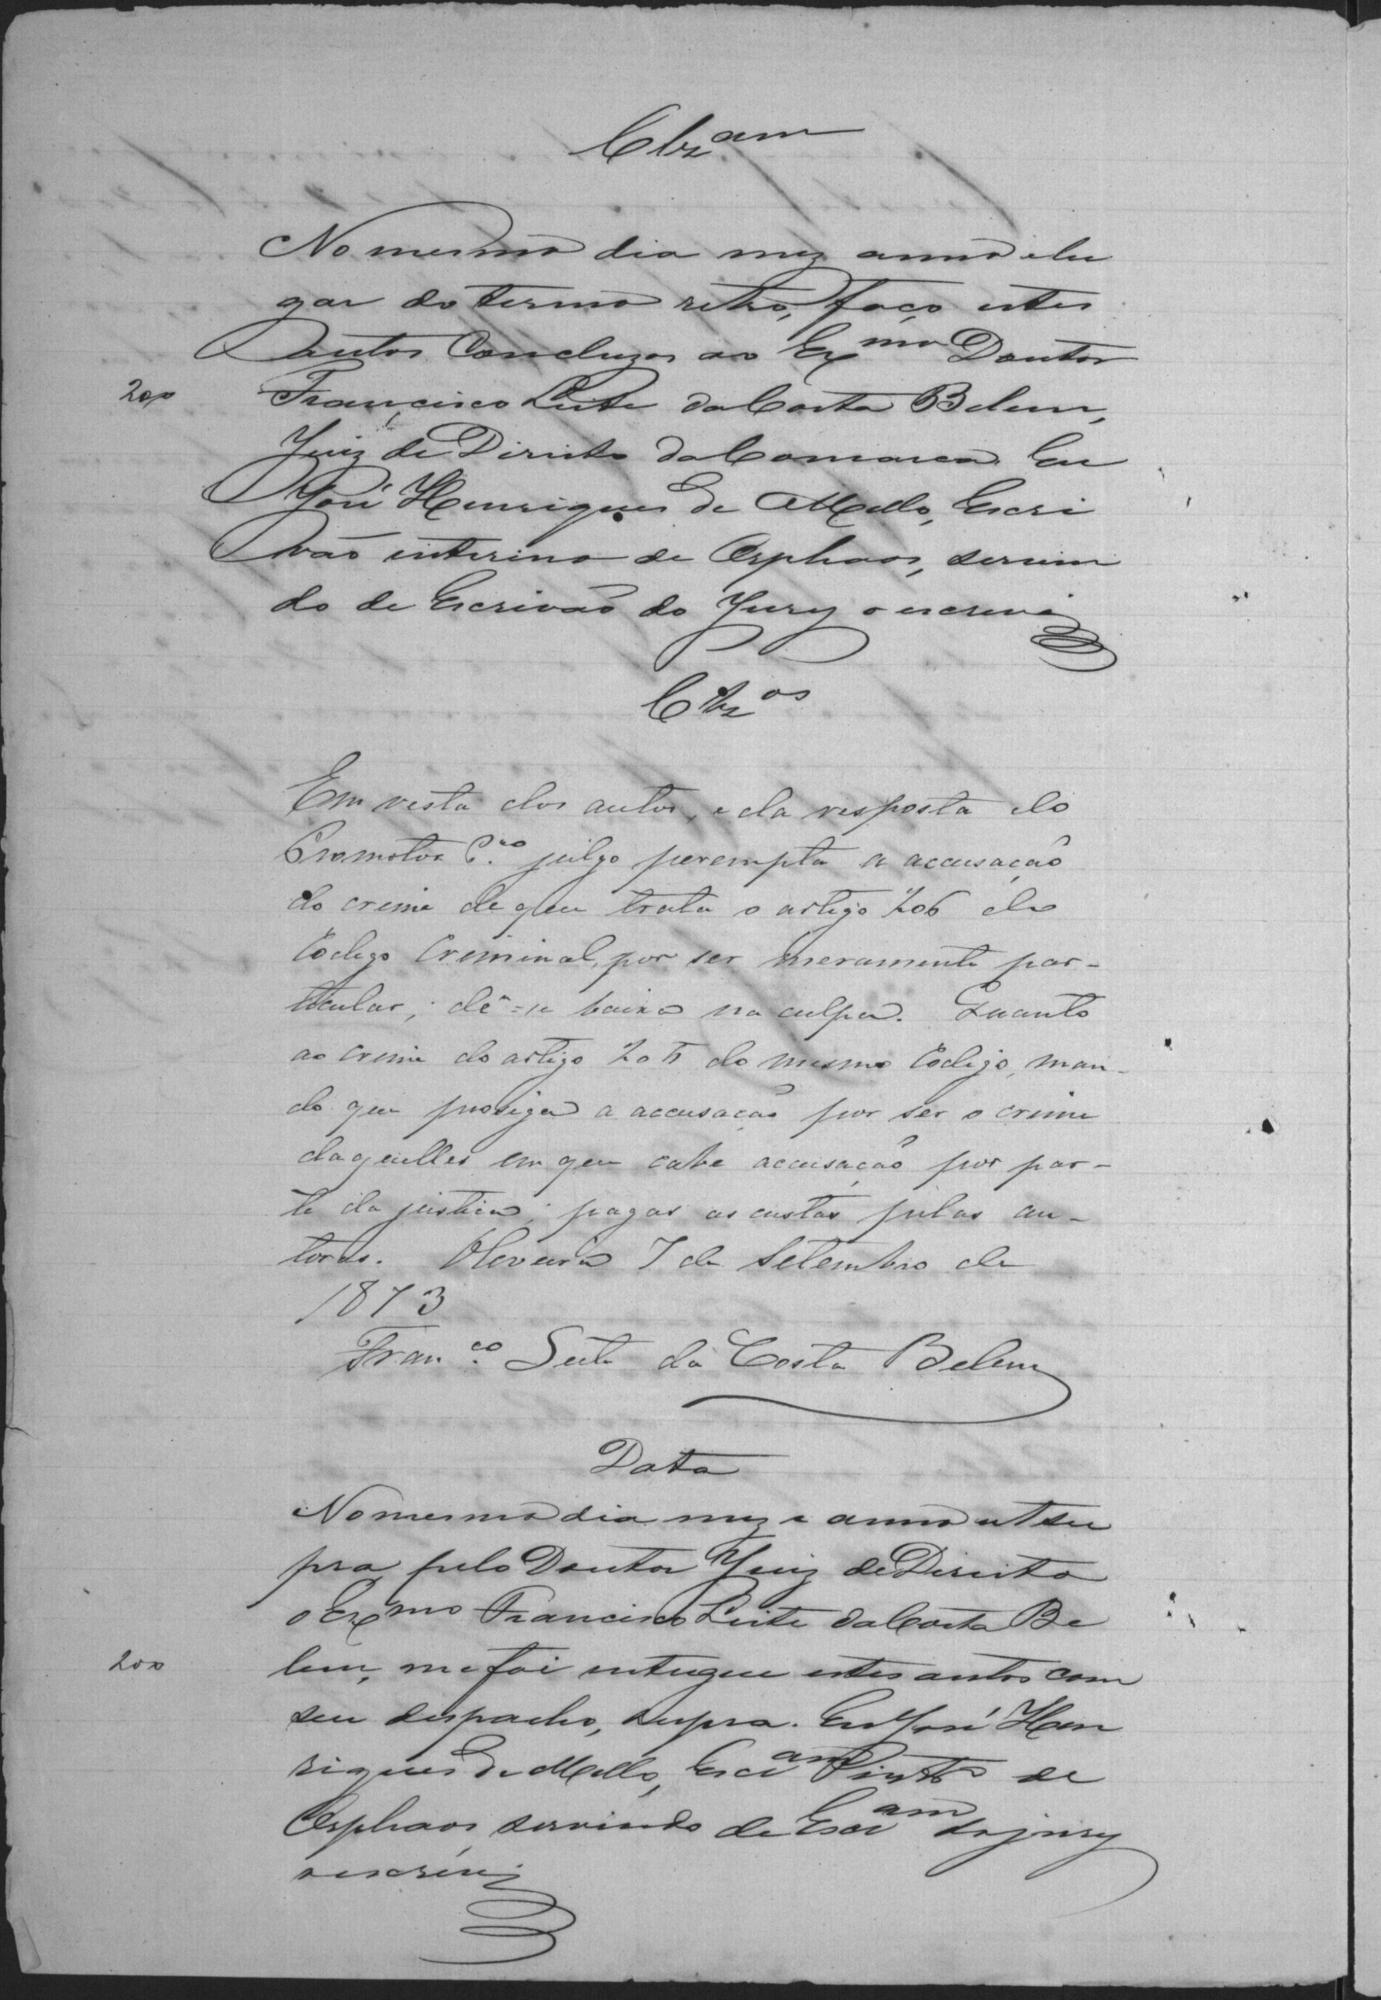 Clz.am
No mesmo dia mez anno e lu
gar do termo retro, faço estes
autos Concluzos ao Ex.mo Doutor
200 Francisco Leite da Costa Belem,
Juiz de Direito da Comarca. Eu
José Henriques de Mello, Escri
vão interino de Orphaos, servin
do de Escrivão do Jury o escrevi
Clzos
Em vista dos autos, e da resposta do
Promotor P.co julgo perempta a accusação
do crime de que trata o artigo 206 do
Codigo Criminal, por ser meramente par-
ticular; dê-se baixa na culpa. Quanto
ao crime do artigo 205 do mesmo Codigo, man-
do que prosiga a accusação por ser o crime
daquelles em que cabe accusação por par-
te da justica; pagas as custas pelas au-
toras. Oliveira 7 de Setembro de
1873
Fran.co Leite da Costa Belem
Data
No mesmo dia mez e anno ut su
pra pelo Doutor Juiz de Direito
o Ex.mo Francisco Leite da Costa Be
200 lem, me foi entregue estes autos com
seu despacho, supra. Eu José Hen
riques de Mello, Escr.am Into de
Orphaos servindo de Escr.am do jury
o escrevi